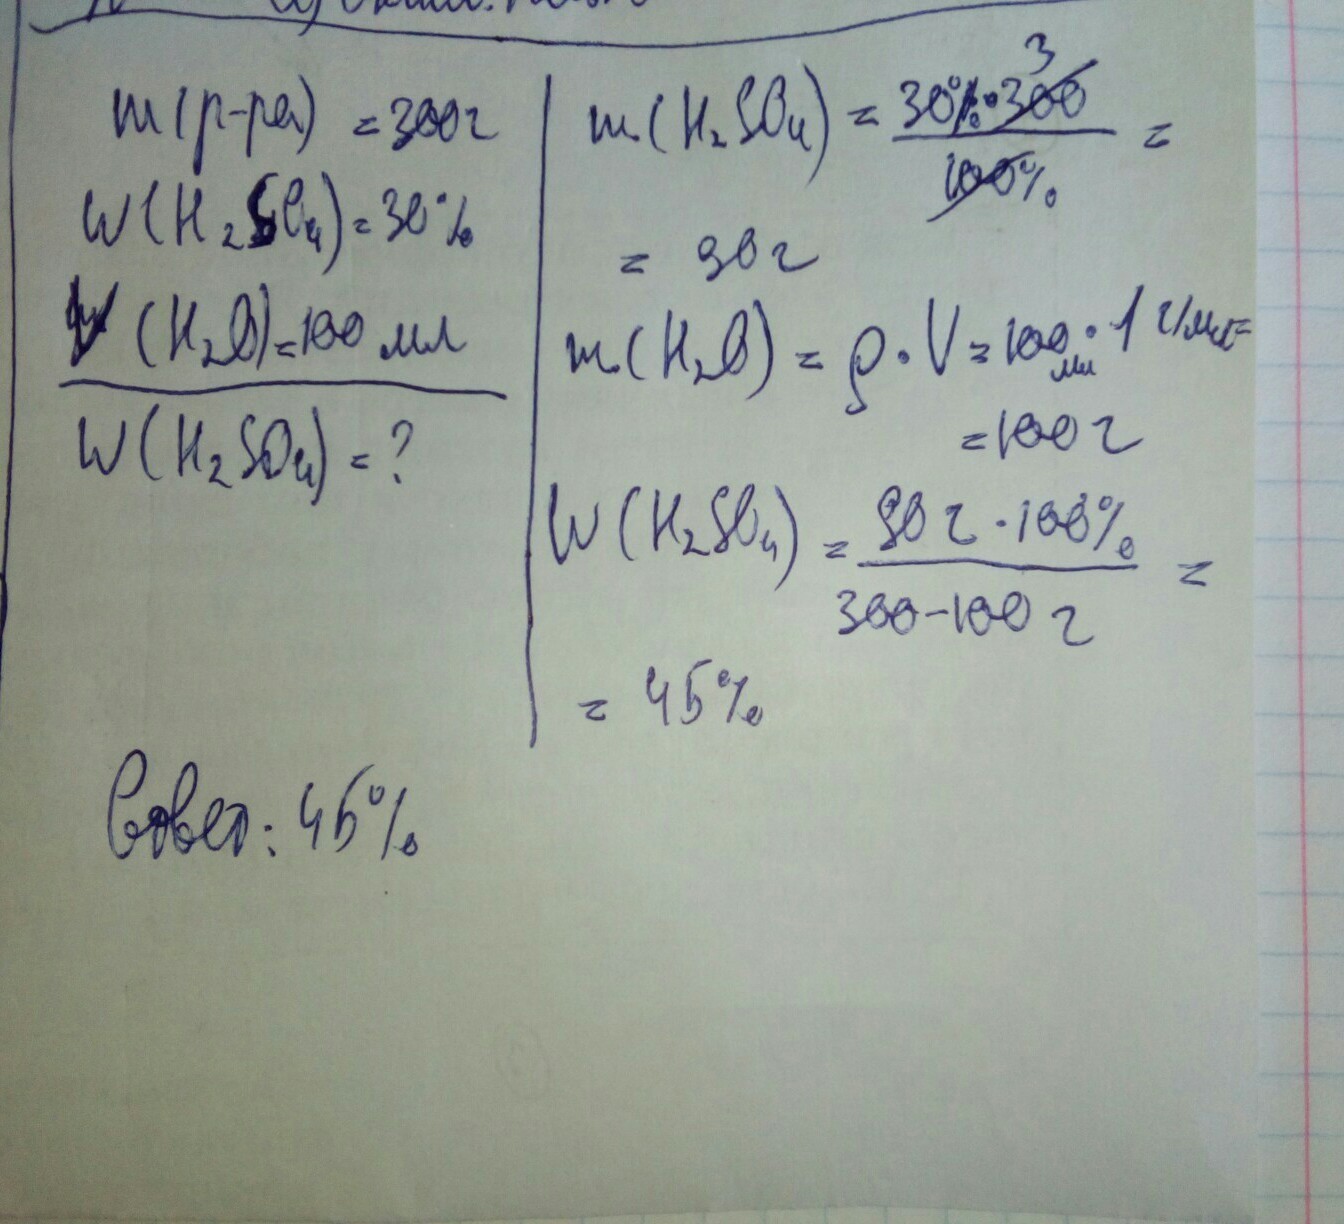 m(р-ра) = 300г
W(H₂SO₄) = 30%
V(H₂O) = 100 мл
W(H₂SO₄) = ?
m(H₂SO₄) = 30% · 300 / 100% =
3
= 90г
m(H₂O) = ρ · V = 100 мл · 1 г/мл =
= 100г
W(H₂SO₄) = 90г · 100% / 300-100г =
= 45%
Ответ: 45%